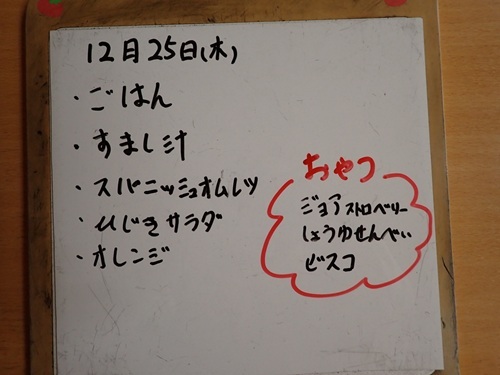 12月25日(木)
・ごはん
・すまし汁
・スパニッシュオムレツ
・ひじきサラダ
・オレンジ
おやつ
ジョアストロベリー
しょうゆせんべい
ビスコ